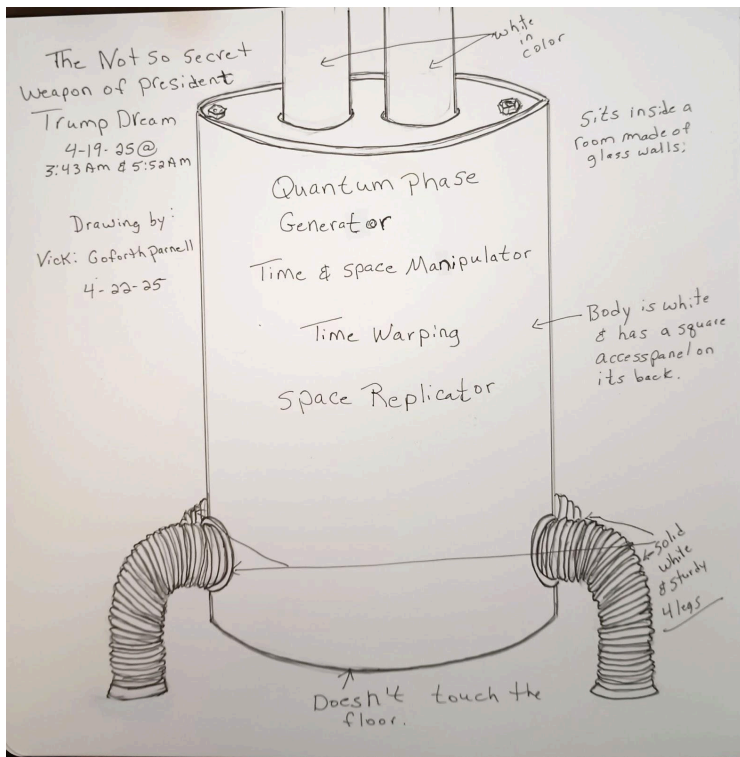 The Not So Secret
Weapon of president
Trump Dream
4-19-25@
3:43 Am & 5:52 Am
Drawing by:
Vicki Goforth Parnell
4-22-25
white
in
color
Sits inside a
room made of
glass walls;
Quantum Phase
Generator
Time & Space Manipulator
Time Warping
Space Replicator
Body is white
& has a square
access panel on
its back.
Solid
white
& sturdy
4 legs
Doesn't touch the
floor.